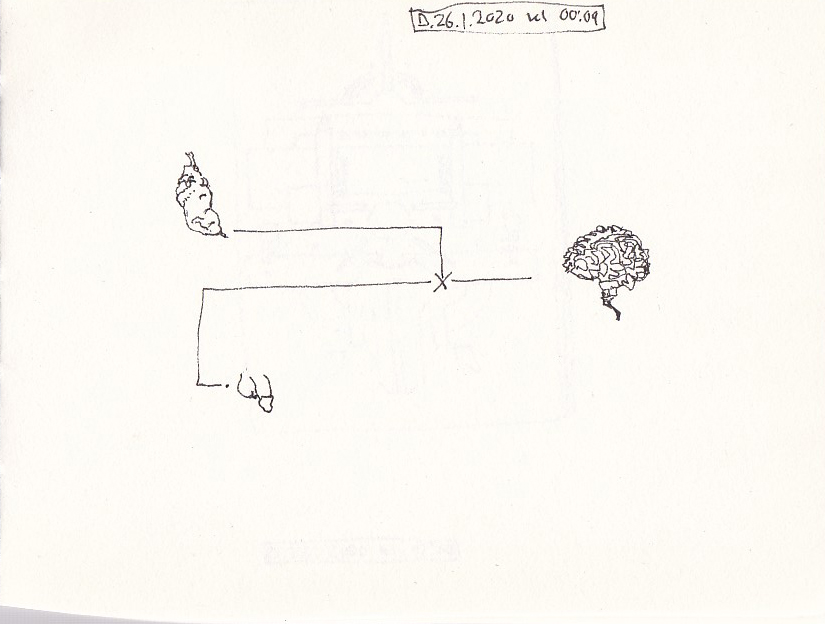 D.26.1.2020 kl 00:09